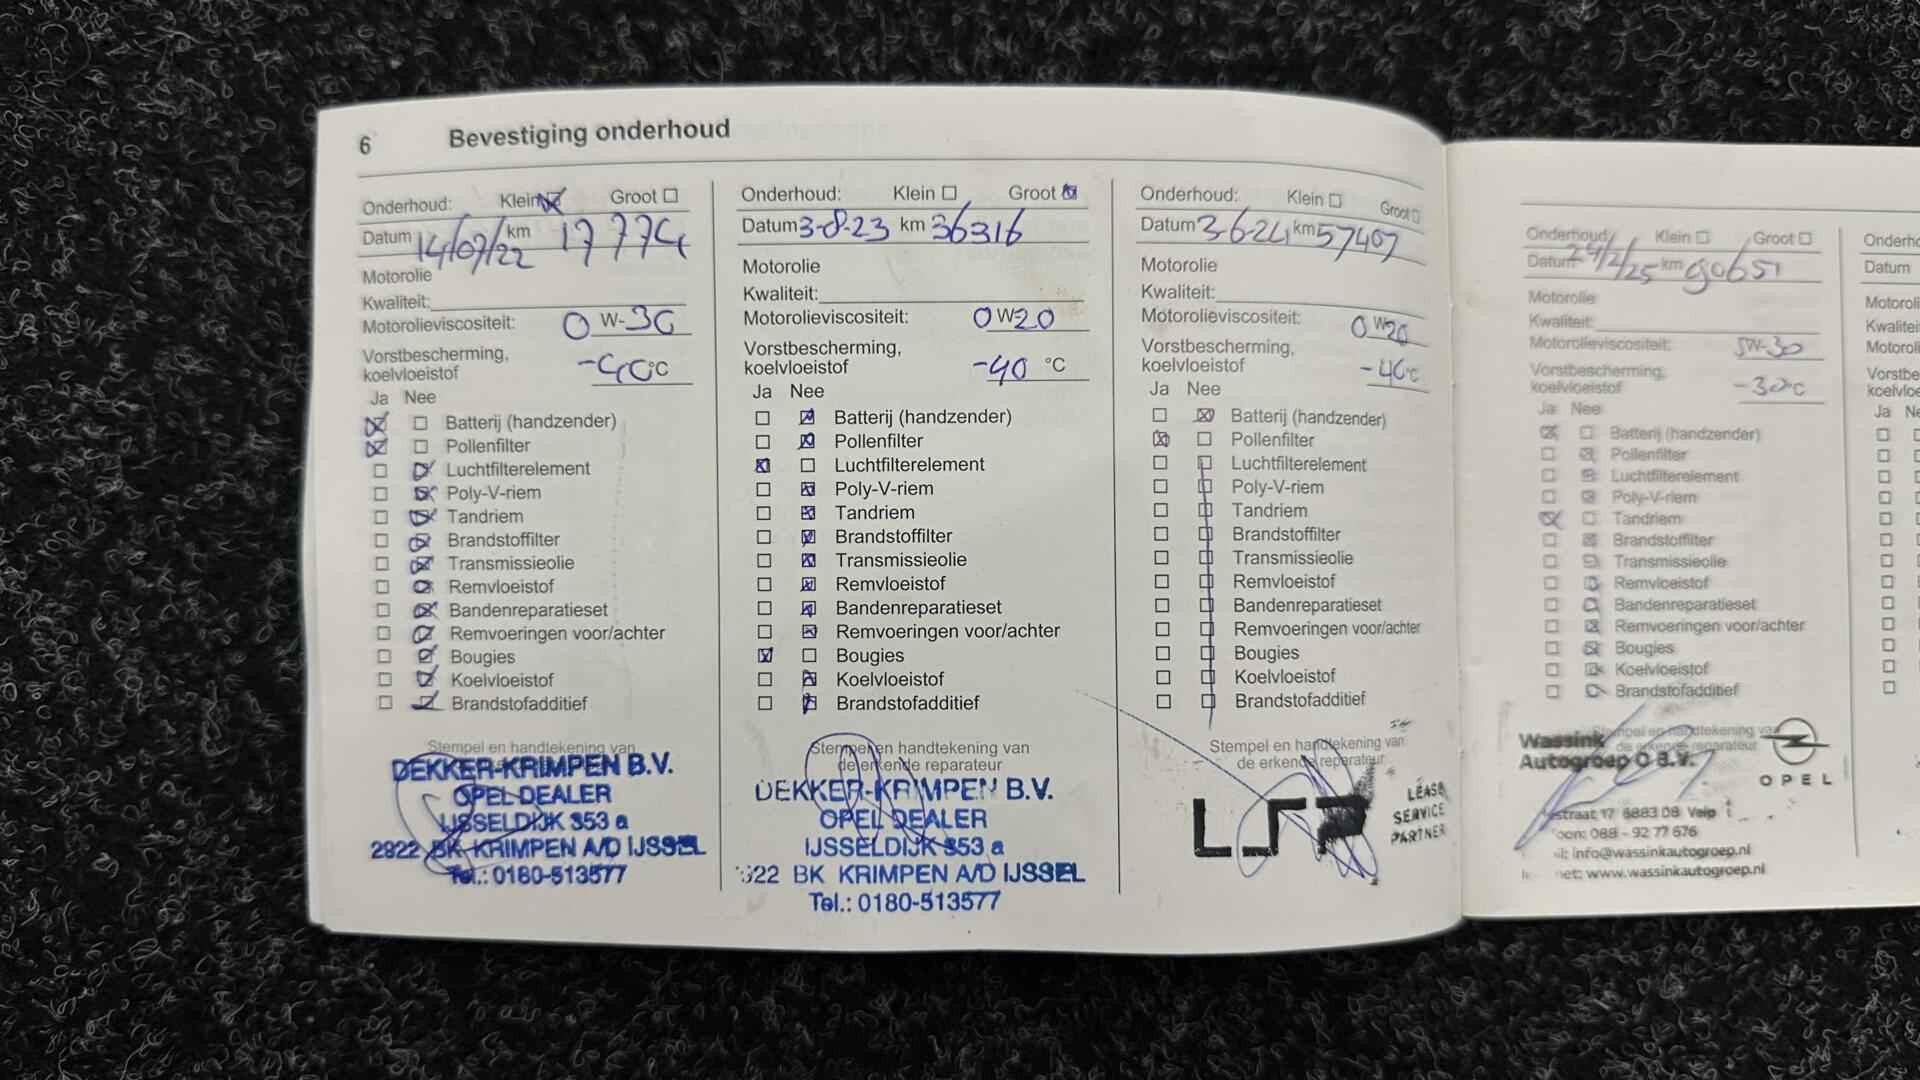 6 Bevestiging onderhoud
Onderhoud: Klein Groot
Datum 14/07/22 km 17774
Motorolie
Kwaliteit:
Motorolieviscositeit: 0 W-30
Vorstbescherming,
koelvloeistof -40°C
Ja Nee
Batterij (handzender)
Pollenfilter
Luchtfilterelement
Poly-V-riem
Tandriem
Brandstoffilter
Transmissieolie
Remvloeistof
Bandenreparatieset
Remvoeringen voor/achter
Bougies
Koelvloeistof
Brandstofadditief
Stempel en handtekening van
DEKKER-KRIMPEN B.V.
OPEL DEALER
IJSSELDIJK 353 a
2922 BK KRIMPEN A/D IJSSEL
Tel.: 0180-513577
Onderhoud: Klein Groot
Datum 3-8-23 km 36316
Motorolie
Kwaliteit:
Motorolieviscositeit: 0 W20
Vorstbescherming,
koelvloeistof -40 °C
Ja Nee
Batterij (handzender)
Pollenfilter
Luchtfilterelement
Poly-V-riem
Tandriem
Brandstoffilter
Transmissieolie
Remvloeistof
Bandenreparatieset
Remvoeringen voor/achter
Bougies
Koelvloeistof
Brandstofadditief
Stempel en handtekening van
de erkende reparateur
DEKKER-KRIMPEN B.V.
OPEL DEALER
IJSSELDIJK 353 a
922 BK KRIMPEN A/D IJSSEL
Tel.: 0180-513577
Onderhoud: Klein Groot
Datum 3-6-24 km 57407
Motorolie
Kwaliteit:
Motorolieviscositeit: 0 W20
Vorstbescherming,
koelvloeistof -40°C
Ja Nee
Batterij (handzender)
Pollenfilter
Luchtfilterelement
Poly-V-riem
Tandriem
Brandstoffilter
Transmissieolie
Remvloeistof
Bandenreparatieset
Remvoeringen voor/achter
Bougies
Koelvloeistof
Brandstofadditief
Stempel en handtekening van
de erkende reparateur
LSP
LEASE
SERVICE
PARTNER
Onderhoud: Klein Groot
Datum km 90651
Motorolie
Kwaliteit:
Motorolieviscositeit: 5W-30
Vorstbescherming,
koelvloeistof -30°C
Ja Nee
Batterij (handzender)
Pollenfilter
Luchtfilterelement
Poly-V-riem
Tandriem
Brandstoffilter
Transmissieolie
Remvloeistof
Bandenreparatieset
Remvoeringen voor/achter
Bougies
Koelvloeistof
Brandstofadditief
Stempel en handtekening van
de erkende reparateur
Wassink
Autogroep O B.V.
OPEL
straat 17 6883 DB Velp
oon: 088 - 92 77 676
il: info@wassinkautogroep.nl
net: www.wassinkautogroep.nl
Onderho
Datum
Motoroli
Kwaliteit:
Motoroli
Vorstbe
koelvloe
Ja Ne